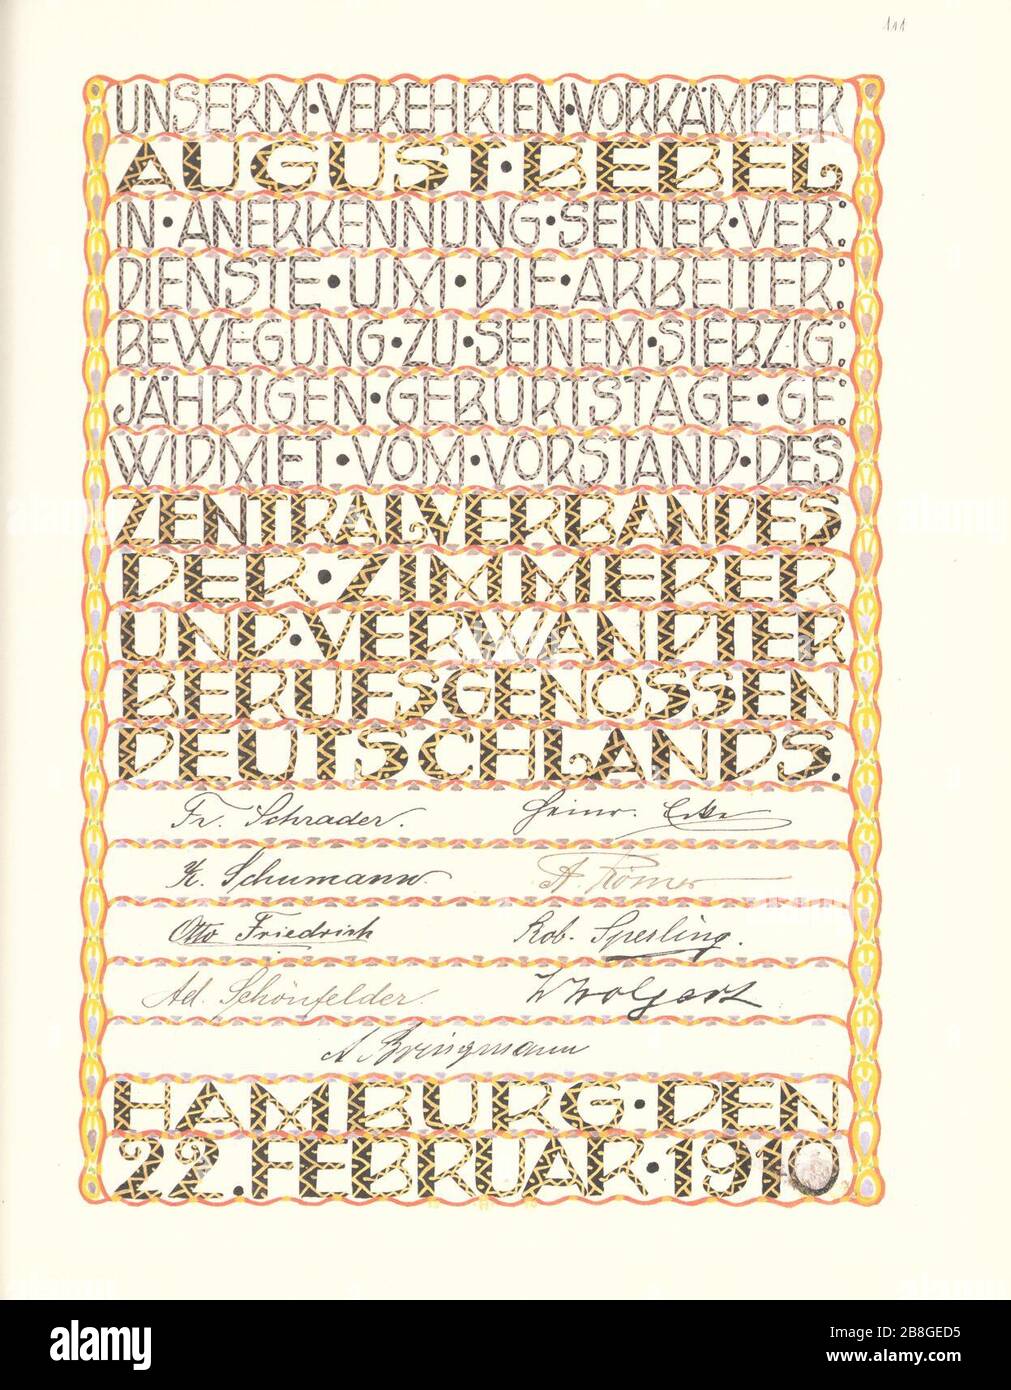 111
UNSERM·VEREHRTEN·VORKÄMPFER
AUGUST·BEBEL
IN·ANERKENNUNG·SEINER·VER:
DIENSTE·UM·DIE·ARBEITER:
BEWEGUNG·ZU·SEINEM·SIEBZIG:
JÄHRIGEN·GEBURTSTAGE·GE:
WIDMET·VOM·VORSTAND·DES
ZENTRALVERBANDES
DER·ZIMMERER
UND·VERWANDTER
BERUFSGENOSSEN
DEUTSCHLANDS.
Fr. Schrader. Heinr. Ecke
Schumann. A. Römer
Otto Friedrich Rob. Sperling.
Ad. Schönfelder. Wolgast
A Bringmann
HAMBURG·DEN
22.FEBRUAR·1910
alamy
Image ID: 2B8GED5
www.alamy.com